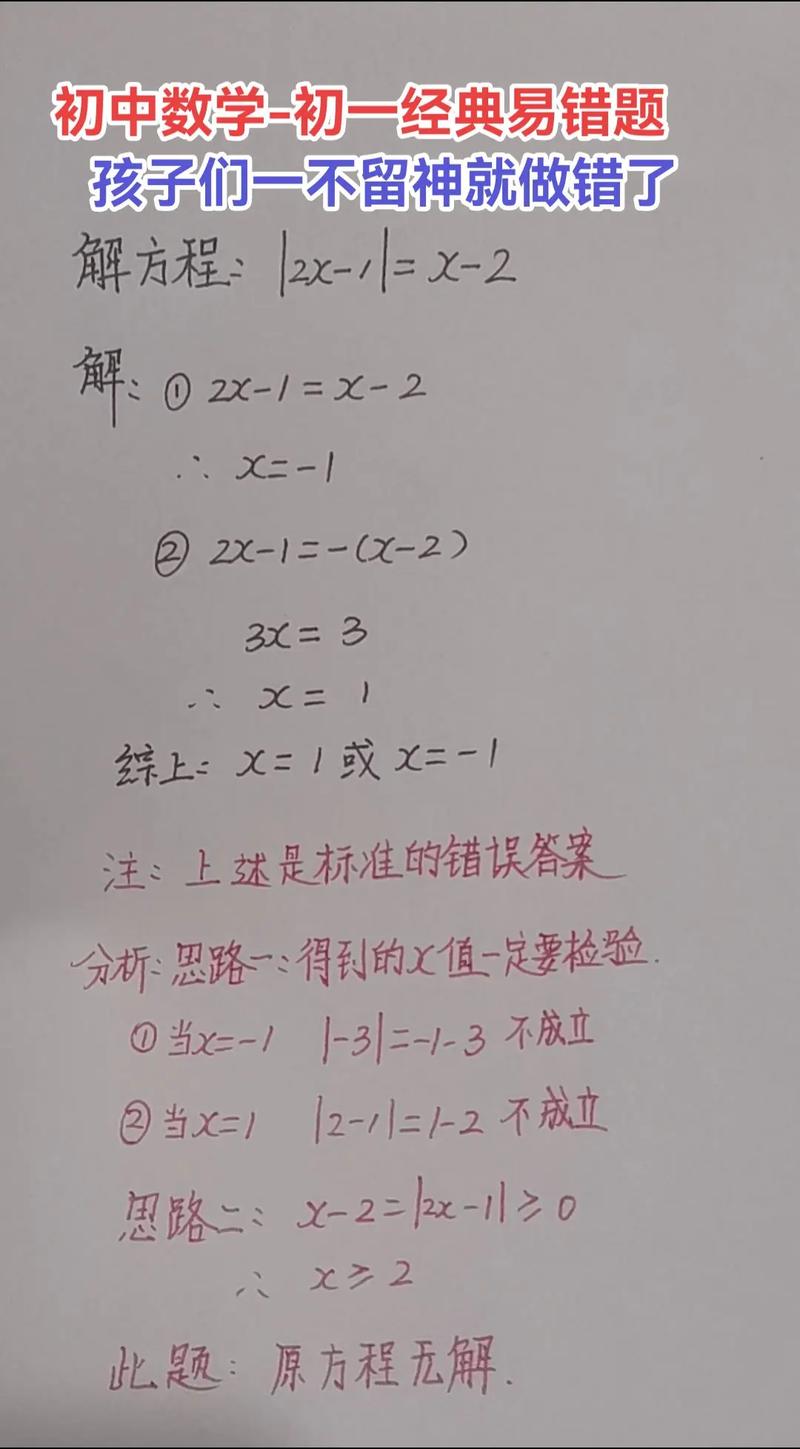 初中数学-初一经典易错题
孩子们一不留神就做错了
解方程: |2x-1|=x-2
解: ① 2x-1=x-2
∴ x=-1
② 2x-1=-(x-2)
3x=3
∴ x=1
综上: x=1或x=-1
注: 上述是标准的错误答案
分析: 思路一: 得到的x值一定要检验.
① 当x=-1 |-3|=-1-3 不成立
② 当x=1 |2-1|=1-2 不成立
思路二: x-2=|2x-1|≥0
∴ x≥2
此题: 原方程无解.